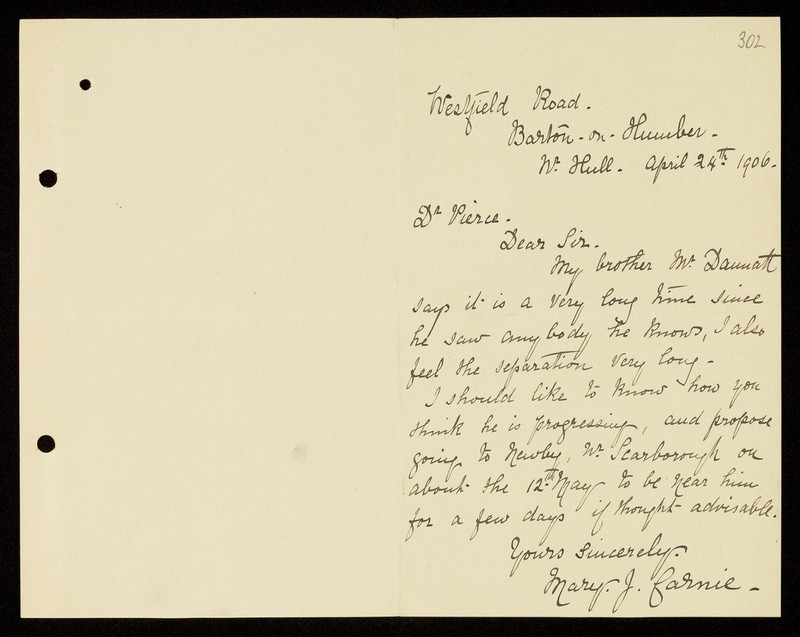 302
Westfield Road.
Barton-on-Humber-
Nr. Hull. April 24th 1906.
Dr Pierce.
Dear Sir.
My brother Mr. Dannatt
says it is a very long time since
he saw anybody he knows, I also
feel the separation very long-
I should like to know how you
think he is progressing, and propose
going to Newby, Nr. Scarborough on
about the 12th May to be near him
for a few days if thought advisable.
Yours sincerely.
Mary. J. Carnie-